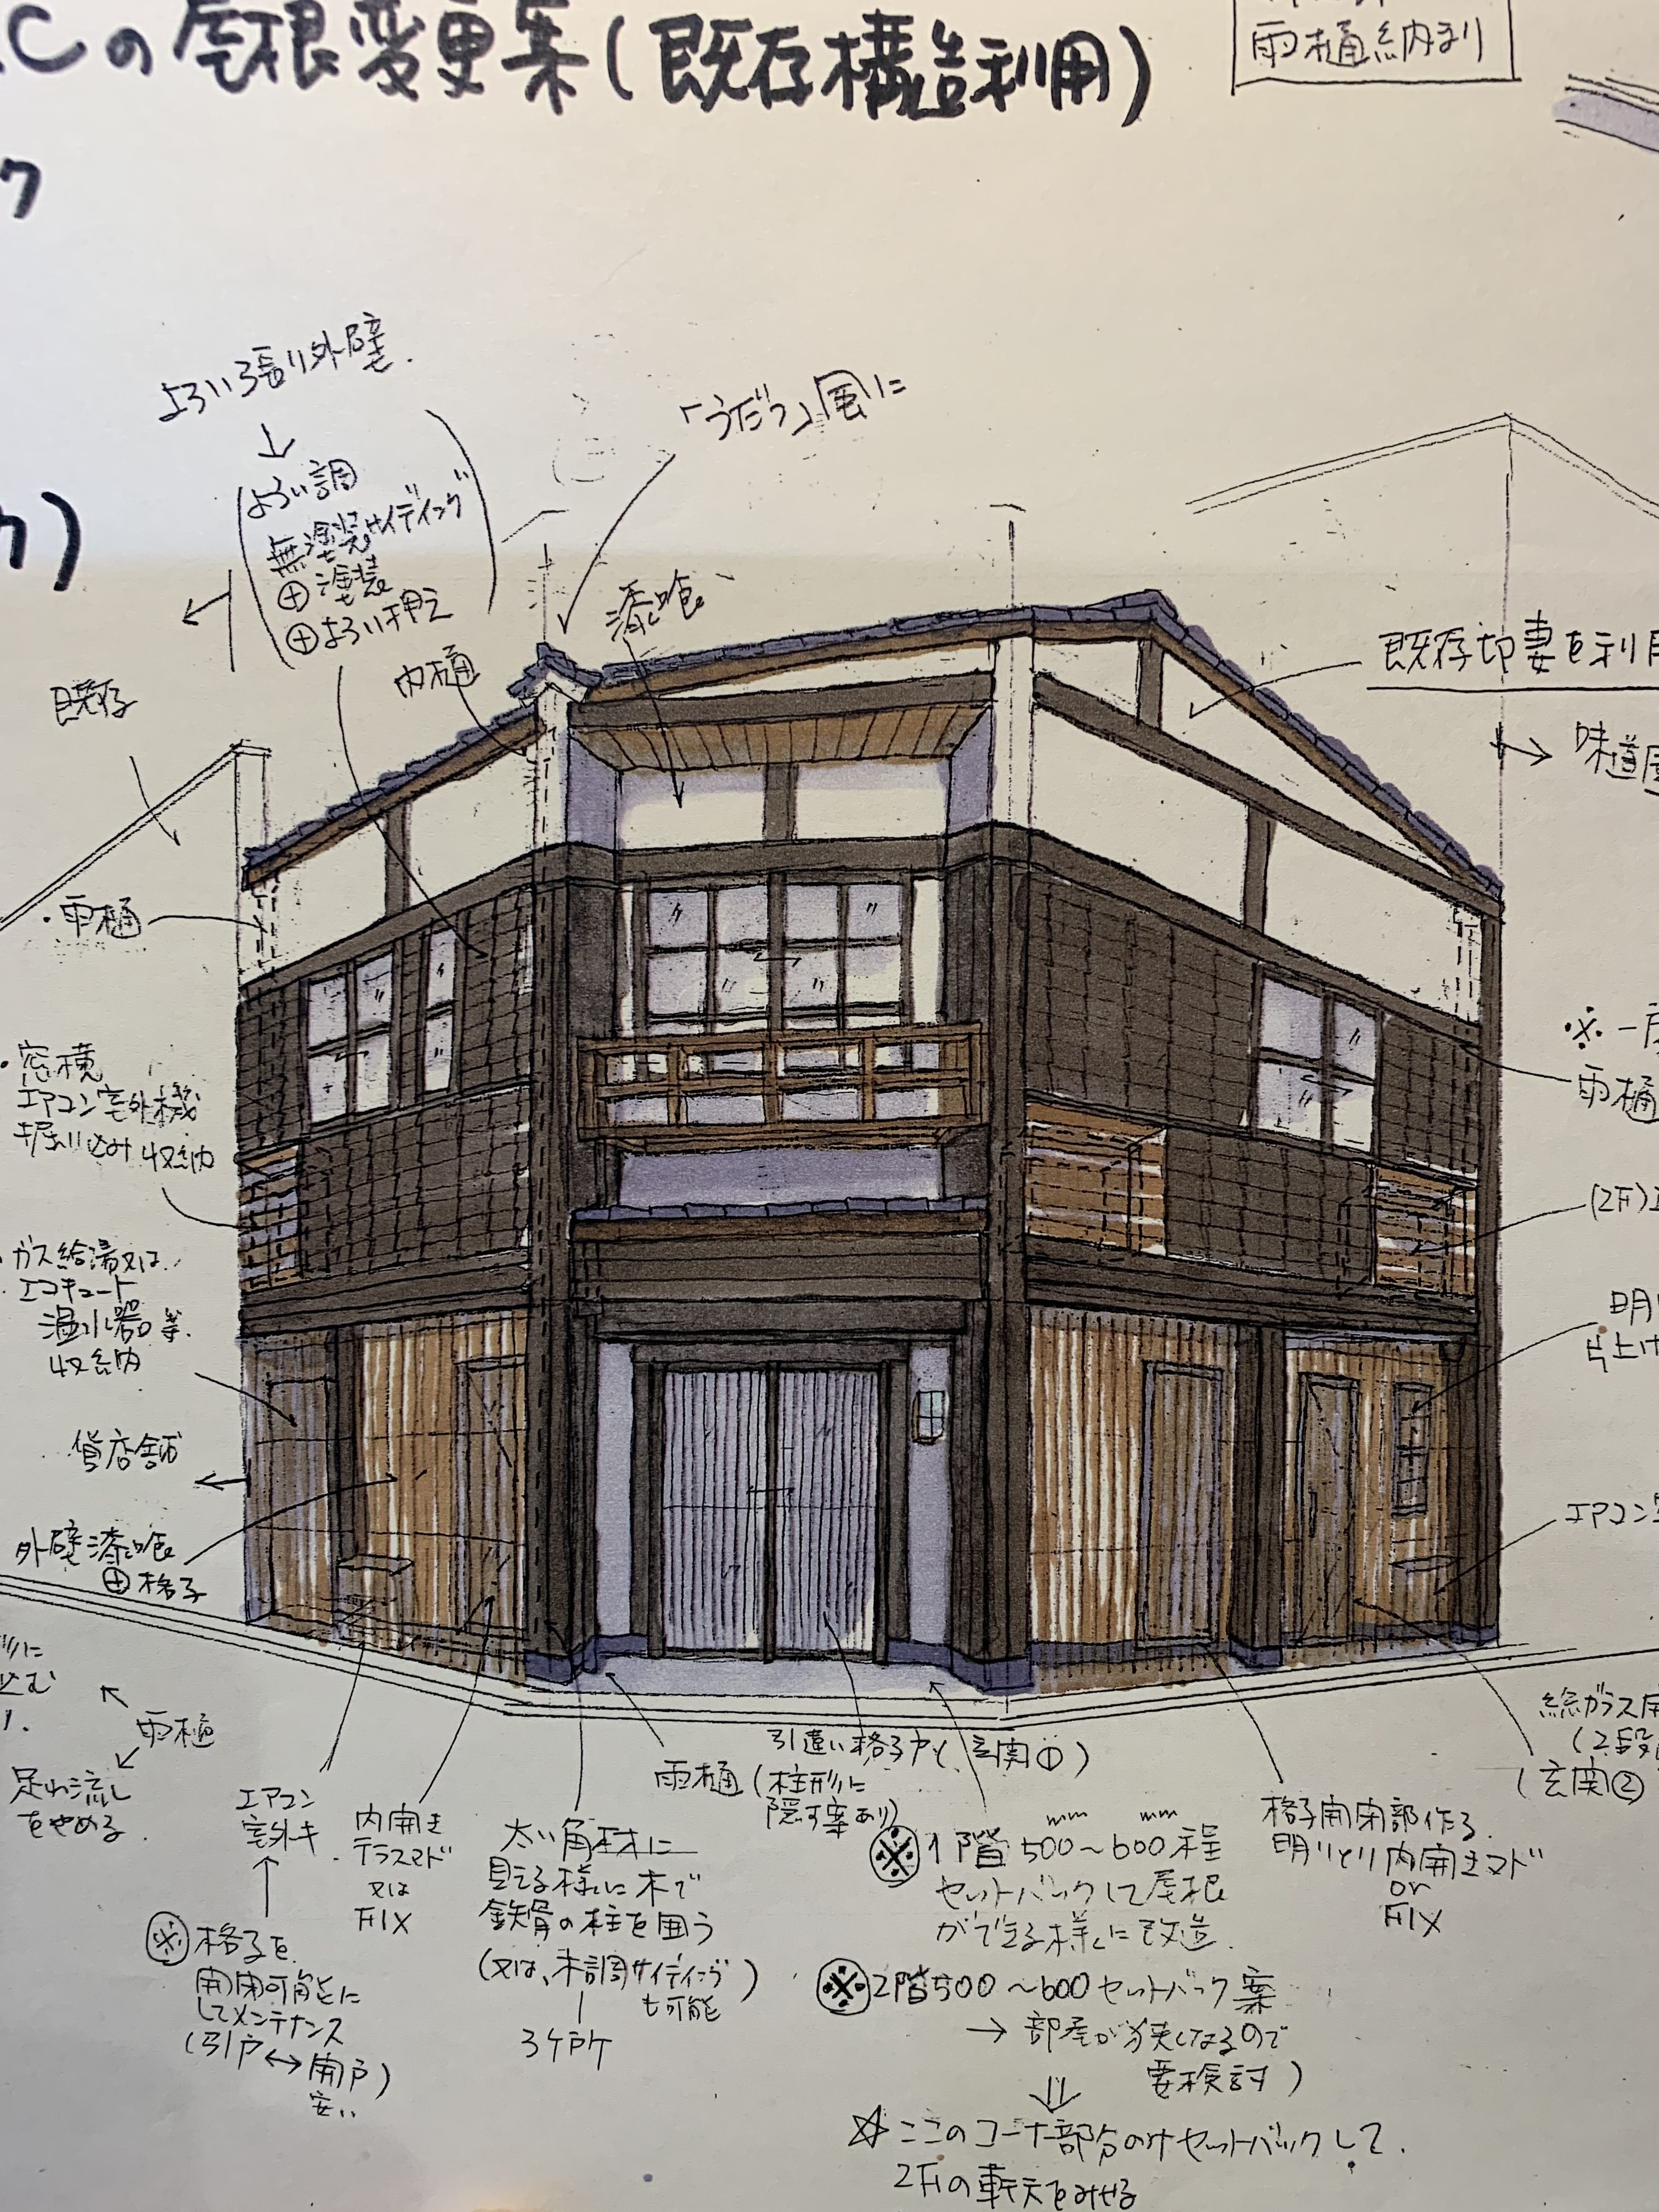 Cの屋根変更案(既存構造利用)
雨樋納まり
ク
よろい張り外壁.
よろい調
無塗装サイディング
⊕塗装
⊕よろい押え
「うだつ」風に
漆喰
内樋
既存
既存切妻を利用
味道
・雨樋
・窓横
エアコン室外機
堀り込み収納
・ガス給湯又は
エコキュート
温水器等.
収納
貸店舗
外壁漆喰
⊕格子
※一
雨樋
(2F)
明
片上げ
エアコン室
込む
雨樋
足れ流し
をやめる.
エアコン
室外キ
※格子を
開閉可能に
してメンテナンス
(引戸↔開戸)
内開き
テラスマド
又は
FIX
太い角材に
見える様に木で
鉄骨の柱を囲う
(又は、木調サイディング
も可能)
3ケ所
雨樋(柱形に
隠す案あり)
引違い格子戸(玄関①)
※1階500mm〜600mm程
セットバックして屋根
ができる様に改造.
※2階500〜600セットバック案
→部屋が狭くなるので
要検討)
⇓
☆ここのコーナー部分のみセットバックして.
2Fの軒天をみせる
格子開閉部作る.
明りとり内開きマド
or
FIX
総ガラス
(2段
(玄関②)